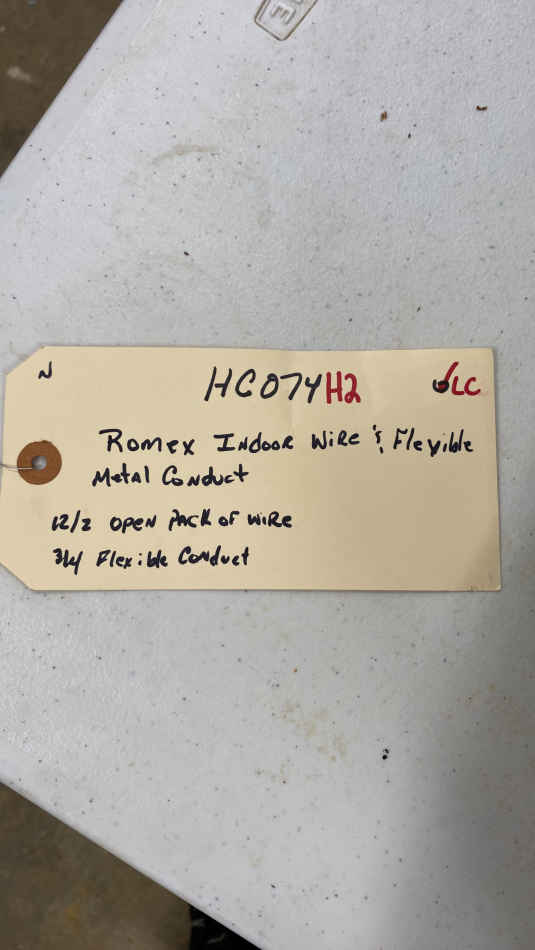 N
HC074H2 LC
Romex Indoor Wire & Flexible
Metal Conduct
12/2 open Pack of Wire
3/4 Flexible Conduct